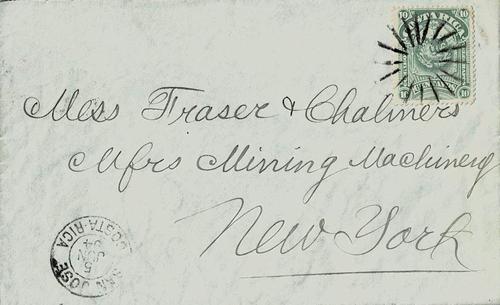 10 COSTA RICA 10
10 10
Mess Fraser & Chalmers
Mfrs Mining Machinery
New York
SAN JOSE
5
JUN
94
COSTA-RICA